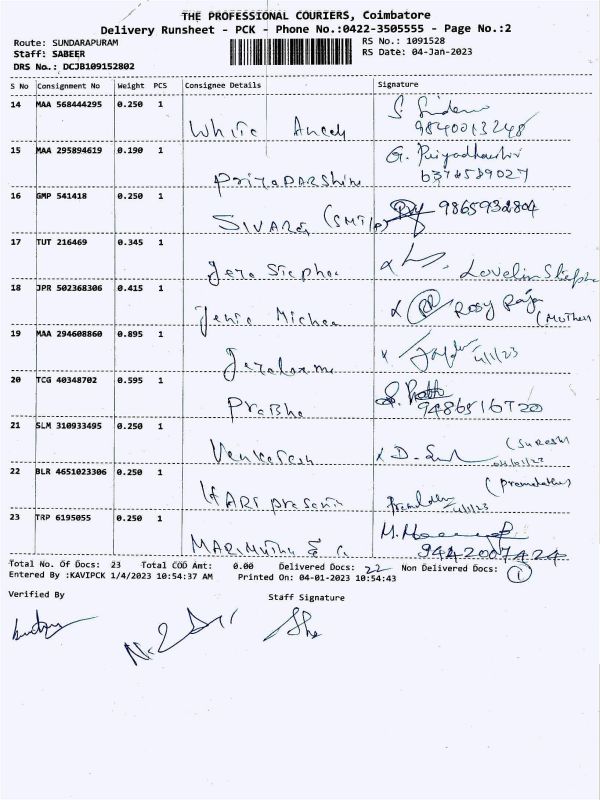 THE PROFESSIONAL COURIERS, Coimbatore
Delivery Runsheet - PCK - Phone No.:0422-3505555 - Page No.:2
Route: SUNDARAPURAM RS No.: 1091528
Staff: SABEER RS Date: 04-Jan-2023
DRS No.: DCJB109152802
S No Consignment No Weight PCS Consignee Details Signature
14 MAA 568444295 0.250 1 White
9840013248
15 MAA 295894619 0.190 1 Priyadarshini G. Priyadharshini
6374589027
16 GMP 541418 0.250 1 SIVARAJ (SMT/P) 9865932804
17 TUT 216469 0.345 1 Jero Stephen Lovelin Stephen
18 JPR 502368306 0.415 1 Jenie Michea Rosy Raja
(Mother)
19 MAA 294608860 0.895 1 4/1/23
20 TCG 40348702 0.595 1 Prabha
9486516720
21 SLM 310933495 0.250 1 Venkatesh (Suresh)
22 BLR 4651023306 0.250 1 HARI prasanth
4/1/23
23 TRP 6195055 0.250 1 MARIMUTHU
9442007424
Total No. Of Docs: 23 Total COD Amt: 0.00 Delivered Docs: 22 Non Delivered Docs: 1
Entered By :KAVIPCK 1/4/2023 10:54:37 AM Printed On: 04-01-2023 10:54:43
Verified By Staff Signature